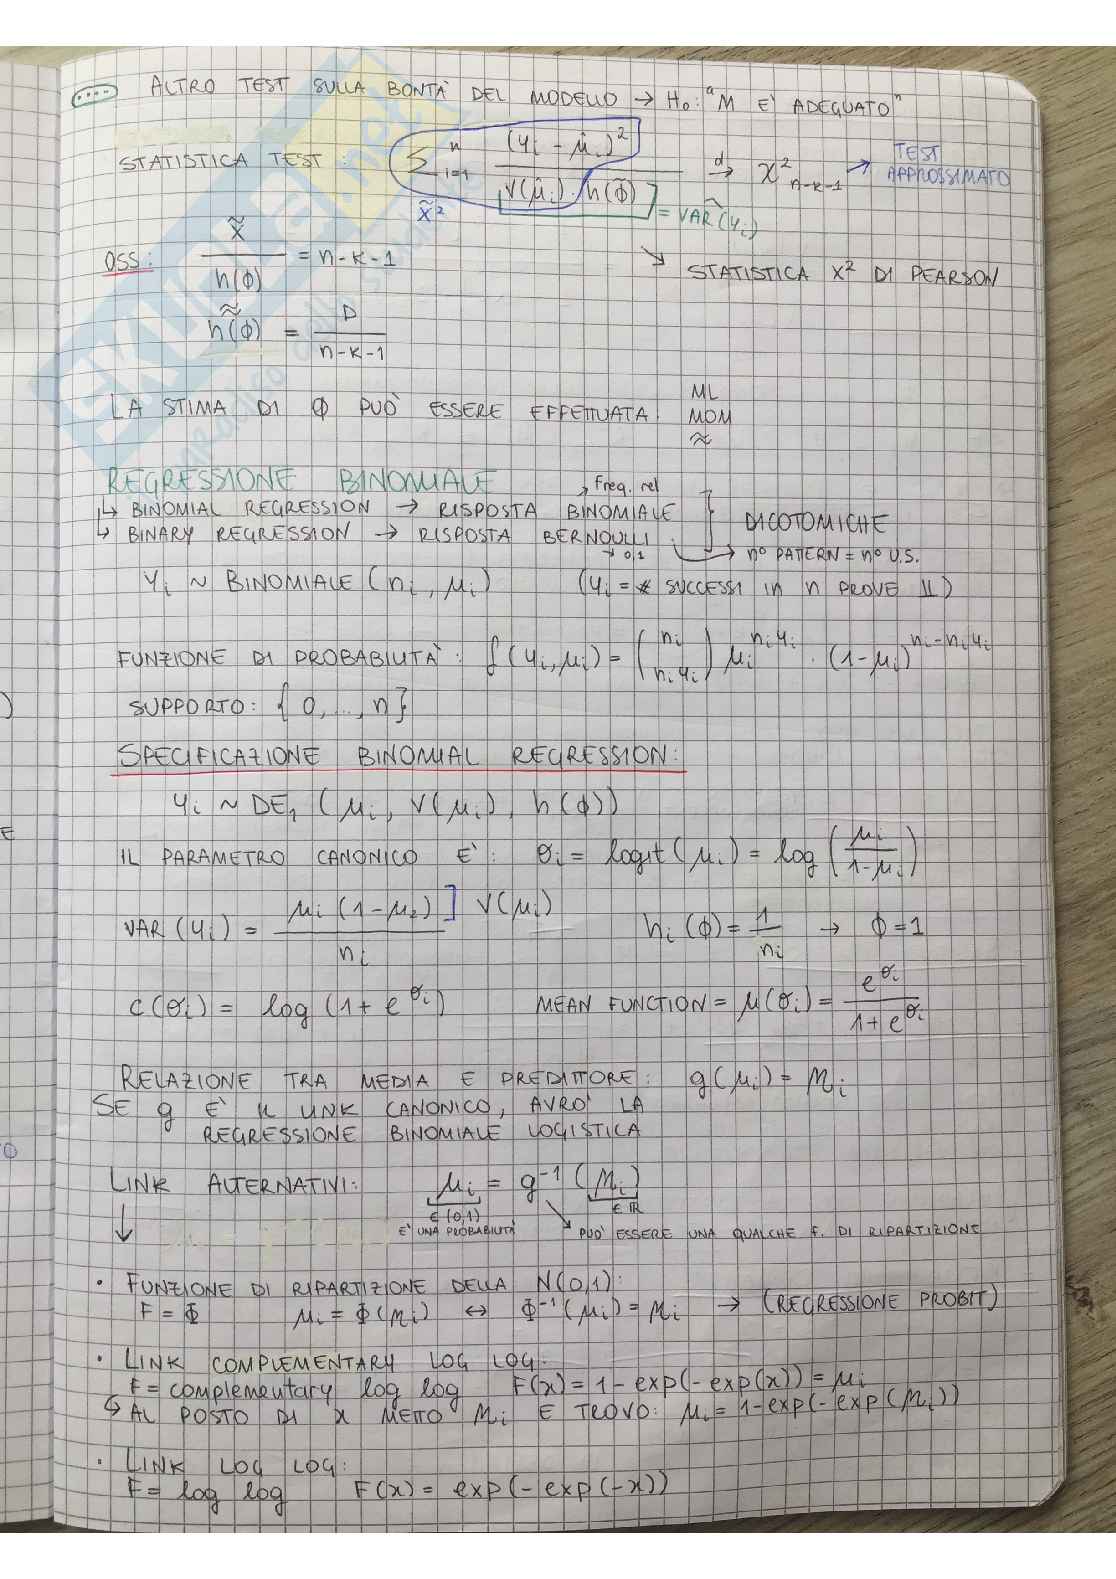 ALTRO TEST SULLA BONTÀ DEL MODELLO → H₀: "M È ADEGUATO"
STATISTICA TEST: Σⁿᵢ₌₁ (yᵢ - μ̂ᵢ)² / V(μ̂ᵢ) · h(φ̃) →ᵈ χ²ₙ₋ₖ₋₁ → TEST APPROSSIMATO
X̃² = VAR̂(yᵢ)
↘ STATISTICA X² DI PEARSON
OSS: X̃ / h(φ) = n-k-1
h(φ) = D / n-k-1
LA STIMA DI φ PUÒ ESSERE EFFETTUATA: ML
MOM
≈
REGRESSIONE BINOMIALE
Freq. rel
↳ BINOMIAL REGRESSION → RISPOSTA BINOMIALE
↳ BINARY REGRESSION → RISPOSTA BERNOULLI
DICOTOMICHE
→ 0,1
→ nº PATTERN = nº U.S.
Yᵢ ~ BINOMIALE (nᵢ, μᵢ) (yᵢ = # SUCCESSI in n PROVE ⊥⊥)
FUNZIONE DI PROBABILITÀ: f(yᵢ, μᵢ) = (nᵢ / nᵢyᵢ) μᵢ^(nᵢyᵢ) · (1-μᵢ)^(nᵢ-nᵢyᵢ)
SUPPORTO: {0,...,n}
SPECIFICAZIONE BINOMIAL REGRESSION:
yᵢ ~ DE₁ (μᵢ, V(μᵢ), h(φ))
IL PARAMETRO CANONICO È: θᵢ = logit(μᵢ) = log(μᵢ / 1-μᵢ)
VAR(yᵢ) = μᵢ(1-μᵢ)] V(μᵢ) / nᵢ hᵢ(φ) = 1/nᵢ → φ=1
c(θᵢ) = log(1+e^θᵢ) MEAN FUNCTION = μ(θᵢ) = e^θᵢ / 1+e^θᵢ
RELAZIONE TRA MEDIA E PREDITTORE: g(μᵢ) = ηᵢ
SE g È IL LINK CANONICO, AVRÒ LA
REGRESSIONE BINOMIALE LOGISTICA
LINK ALTERNATIVI: μᵢ = g⁻¹(ηᵢ)
∈ (0,1) ∈ ℝ
È UNA PROBABILITÀ PUÒ ESSERE UNA QUALCHE F. DI RIPARTIZIONE
• FUNZIONE DI RIPARTIZIONE DELLA N(0,1):
F = Φ μᵢ = Φ(ηᵢ) ↔ Φ⁻¹(μᵢ) = ηᵢ → (REGRESSIONE PROBIT)
• LINK COMPLEMENTARY LOG LOG:
F = complementary log log F(x) = 1-exp(-exp(x)) = μᵢ
↳ AL POSTO DI x METTO ηᵢ E TROVO: μᵢ = 1-exp(-exp(ηᵢ))
• LINK LOG LOG:
F = log log F(x) = exp(-exp(-x))